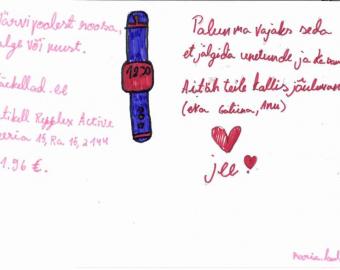 Värvi poolest roosa,
valge või must.
käekellad.ee
Reflex Active
Seeria 15, Ra 15, 2144
1.96 €.
12 30
Palun ma vajaks seda
et jälgida unetunde ja ka
Aitäh teile kallis jõuluvana
(eka Galiina, Anu)
jee!
maria